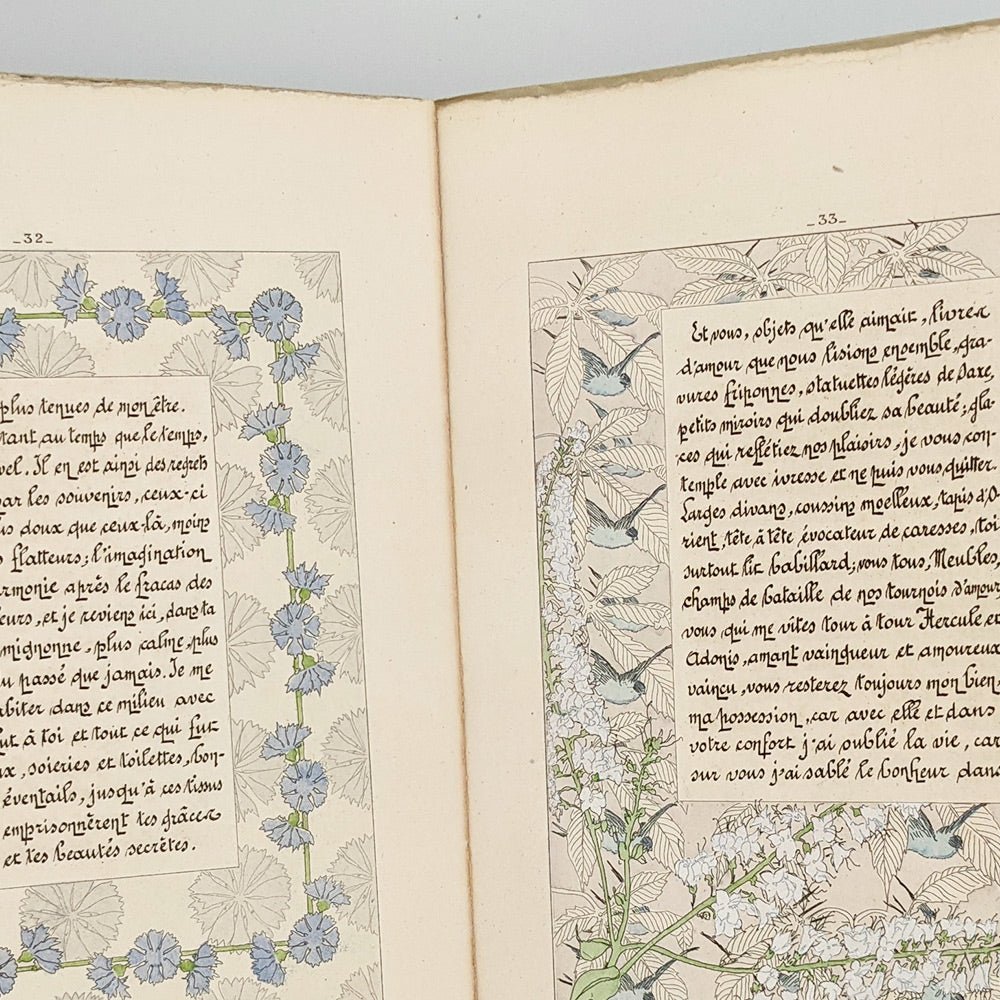 _32_
plus tenues de mon être.
tant au temps que le temps,
vel. Il en est ainsi des regrets
par les souvenirs, ceux-ci
us doux que ceux-là, moins
s flatteurs; l'imagination
rmonie après le fracas des
eurs, et je reviens ici, dans ta
mignonne, plus calme, plus
u passé que jamais. Je me
abiter dans ce milieu avec
fut à toi et tout ce qui fut
ux, soieries et toilettes, bon-
éventails, jusqu'à ces tissus
emprisonnèrent tes grâces
et tes beautés secrètes.
_33_
Et vous, objets qu'elle aimait, livres
d'amour que nous lisions ensemble, gra-
vures friponnes, statuettes légères de Saxe,
petits miroirs qui doubliez sa beauté; gla-
ces qui reflétiez nos plaisirs, je vous con-
temple avec ivresse et ne puis vous quitter.
Larges divans, coussins moelleux, tapis d'O-
rient, tête à tête évocateur de caresses, toi
surtout lit babillard; vous tous, Meubles,
champs de bataille de nos tournois d'amour
vous qui me vîtes tour à tour Hercule et
Adonis, amant vainqueur et amoureux
vaincu, vous resterez toujours mon bien,
ma possession, car avec elle et dans
votre confort j'ai oublié la vie, car
sur vous j'ai sablé le bonheur dans